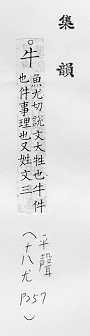 集韻
。牛
魚尤切說文大牲也牛件
也件事理也又姓文三
平聲
(十八尤 P257)